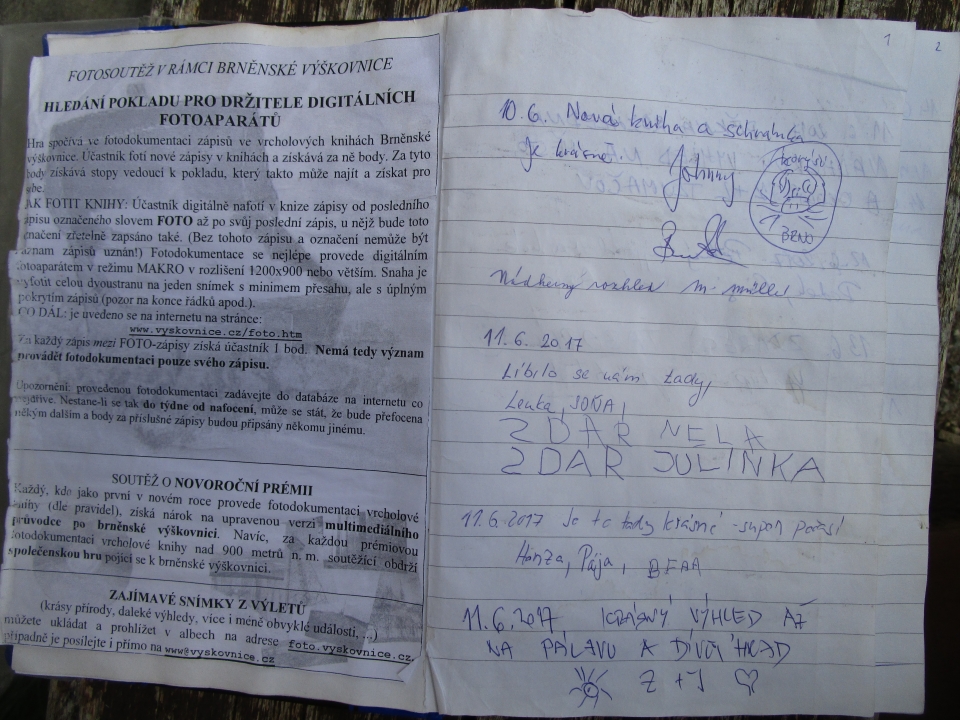 FOTOSOUTĚŽ V RÁMCI BRNĚNSKÉ VÝŠKOVNICE
HLEDÁNÍ POKLADU PRO DRŽITELE DIGITÁLNÍCH
FOTOAPARÁTŮ
Hra spočívá ve fotodokumentaci zápisů ve vrcholových knihách Brněnské
výškovnice. Účastník fotí nové zápisy v knihách a získává za ně body. Za tyto
body získává stopy vedoucí k pokladu, který takto může najít a získat pro
sebe.
JAK FOTIT KNIHY: Účastník digitálně nafotí v knize zápisy od posledního
zápisu označeného slovem FOTO až po svůj poslední zápis, u nějž bude toto
označení zřetelně zapsáno také. (Bez tohoto zápisu a označení nemůže být
záznam zápisů uznán!) Fotodokumentace se nejlépe provede digitálním
fotoaparátem v režimu MAKRO v rozlišení 1200x900 nebo větším. Snaha je
vyfotit celou dvoustranu na jeden snímek s minimem přesahu, ale s úplným
pokrytím zápisů (pozor na konce řádků apod.).
CO DÁL: je uvedeno se na internetu na stránce:
www.vyskovnice.cz/foto.htm
Za každý zápis mezi FOTO-zápisy získá účastník 1 bod. Nemá tedy význam
provádět fotodokumentaci pouze svého zápisu.
Upozornění: provedenou fotodokumentaci zadávejte do databáze na internetu co
nejdříve. Nestane-li se tak do týdne od nafocení, může se stát, že bude přefocena
někým dalším a body za příslušné zápisy budou připsány někomu jinému.
SOUTĚŽ O NOVOROČNÍ PRÉMII
Každý, kdo jako první v novém roce provede fotodokumentaci vrcholové
knihy (dle pravidel), získá nárok na upravenou verzi multimediálního
průvodce po brněnské výškovnici. Navíc, za každou prémiovou
fotodokumentaci vrcholové knihy nad 900 metrů n. m. soutěžící obdrží
společenskou hru pojící se k brněnské výškovnici.
ZAJÍMAVÉ SNÍMKY Z VÝLETŮ
(krásy přírody, daleké výhledy, více i méně obvyklé události, ...)
můžete ukládat a prohlížet v albech na adrese foto.vyskovnice.cz,
případně je posílejte i přímo na www@vyskovnice.cz
1
2
10.6. Nová kniha a schránka
Je krásně. Johnny
BRNO
Nádherný rozhled
11.6.2017
Líbilo se nám tady,
Lenka, SOŇA,
ZDAR NELA
ZDAR JULINKA
11.6.2017 Je to tady krásné - supr počasí
Honza, Pája,
11.6.2017 KRÁSNÝ VÝHLED AŽ
NA PÁLAVU A DÍVČÍ HRAD
Z + J